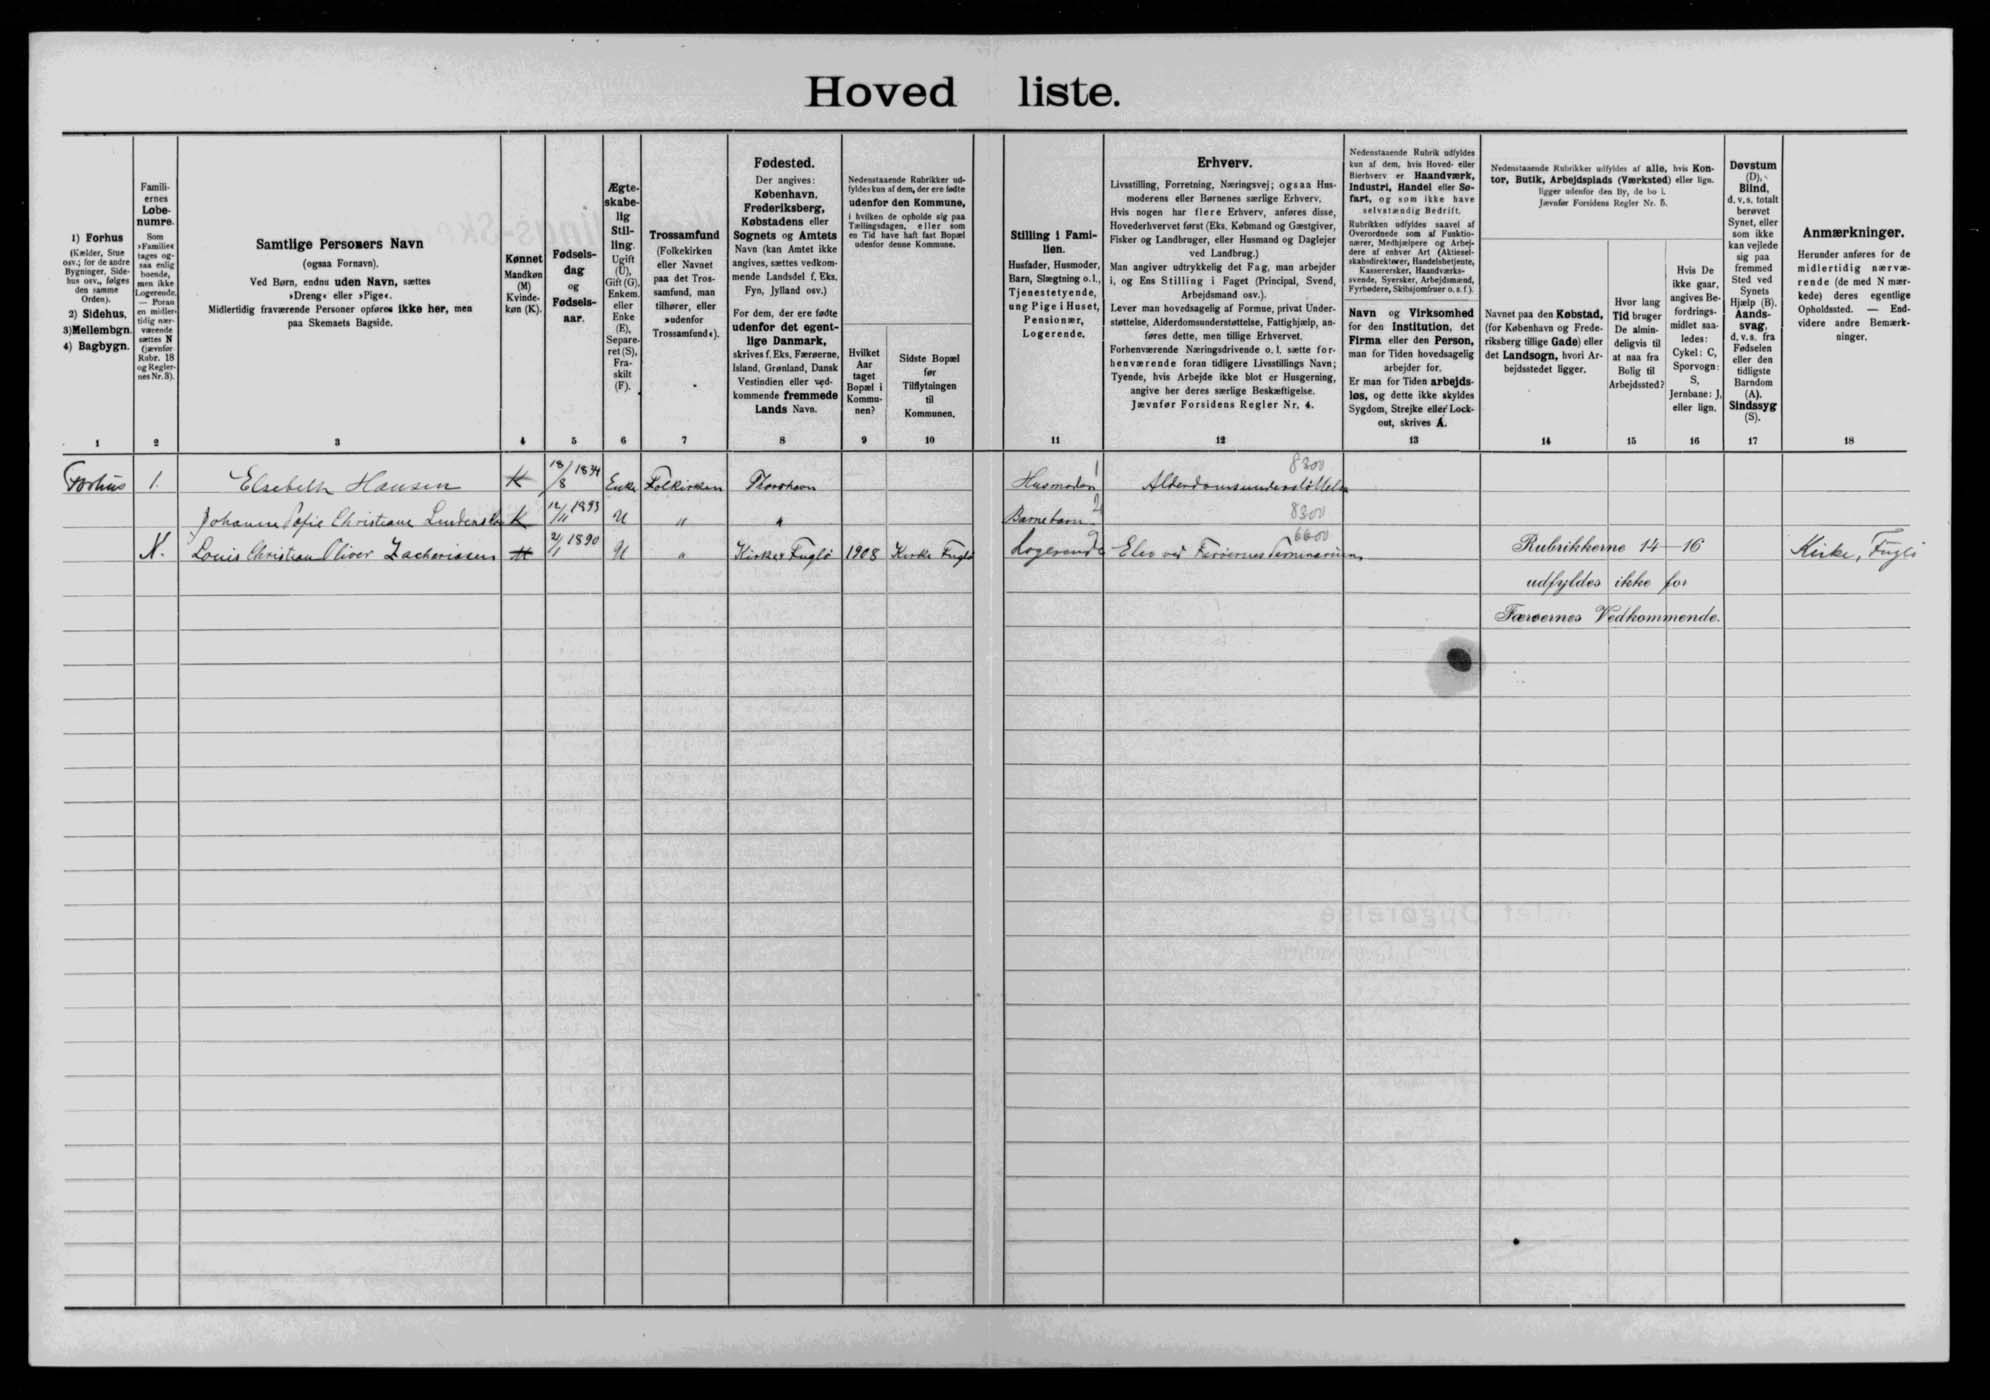 Hoved liste.
1) Forhus
(Kælder, Stue
osv.; for de andre
Bygninger, Side-
hus osv., følges
den samme
Orden).
2) Sidehus,
3) Mellembgn.
4) Bagbygn.
Famili-
ernes
Løbe-
numre.
Som
»Familie«
tages og-
saa enlig
boende,
men ikke
Logerende.
— Foran
en midler-
tidig nær-
værende
sættes N
(jævnfør
Rubr. 18
og Regler-
nes Nr. 3).
Samtlige Personers Navn
(ogsaa Fornavn).
Ved Børn, endnu uden Navn, sættes
»Dreng« eller »Pige«.
Midlertidig fraværende Personer opføres ikke her, men
paa Skemaets Bagside.
Kønnet
Mandkøn
(M)
Kvinde-
køn (K).
Fødsels-
dag
og
Fødsels-
aar.
Ægte-
skabe-
lig
Stil-
ling.
Ugift
(U),
Gift (G),
Enkem.
eller
Enke
(E),
Separe-
ret (S),
Fra-
skilt
(F).
Trossamfund
(Folkekirken
eller Navnet
paa det Tros-
samfund, man
tilhører, eller
»udenfor
Trossamfund«).
Fødested.
Der angives:
København,
Frederiksberg,
Købstadens eller
Sognets og Amtets
Navn (kan Amtet ikke
angives, sættes vedkom-
mende Landsdel f. Eks.
Fyn, Jylland osv.)
For dem, der ere fødte
udenfor det egent-
lige Danmark,
skrives f. Eks. Færøerne,
Island, Grønland, Dansk
Vestindien eller ved-
kommende fremmede
Lands Navn.
Nedenstaaende Rubrikker ud-
fyldes kun af dem, der ere fødte
udenfor den Kommune,
i hvilken de opholde sig paa
Tællingsdagen, eller som
en Tid have haft fast Bopæl
udenfor denne Kommune.
Hvilket
Aar
taget
Bopæl i
Kommu-
nen?
Sidste Bopæl
før
Tilflytningen
til
Kommunen.
Stilling i Fami-
lien.
Husfader, Husmoder,
Barn, Slægtning o. l.,
Tjenestetyende,
ung Pige i Huset,
Pensionær,
Logerende.
Erhverv.
Livsstilling, Forretning, Næringsvej; ogsaa Hus-
moderens eller Børnenes særlige Erhverv.
Hvis nogen har flere Erhverv, anføres disse,
Hovederhvervet først (Eks. Købmand og Gæstgiver,
Fisker og Landbruger, eller Husmand og Daglejer
ved Landbrug.)
Man angiver udtrykkelig det Fag, man arbejder
i, og Ens Stilling i Faget (Principal, Svend,
Arbejdsmand osv.).
Lever man hovedsagelig af Formue, privat Under-
støttelse, Alderdomsunderstøttelse, Fattighjælp, an-
føres dette, men tillige Erhvervet.
Forhenværende Næringsdrivende o. l. sætte for-
henværende foran tidligere Livsstillings Navn;
Tyende, hvis Arbejde ikke blot er Husgerning,
angive her deres særlige Beskæftigelse.
Jævnfør Forsidens Regler Nr. 4.
Nedenstaaende Rubrik udfyldes
kun af dem, hvis Hoved- eller
Bierhverv er Haandværk,
Industri, Handel eller Sø-
fart, og som ikke have
selvstændig Bedrift.
Rubrikken udfyldes saavel af
Overordnede som af Funktio-
nærer, Medhjælpere og Arbej-
dere af enhver Art (Aktiesel-
skabsdirektører, Handelsbetjente,
Kassererske, Haandværks-
svende, Syersker, Arbejdsmænd,
Fyrbødere, Skibsjomfruer o. s. f.).
Navn og Virksomhed
for den Institution, det
Firma eller den Person,
man for Tiden hovedsagelig
arbejder for.
Er man for Tiden arbejds-
løs, og dette ikke skyldes
Sygdom, Strejke eller Lock-
out, skrives A.
Nedenstaaende Rubrikker udfyldes af alle, hvis Kon-
tor, Butik, Arbejdsplads (Værksted) eller lign.
ligger udenfor den By, de bo i.
Jævnfør Forsidens Regler Nr. 5.
Navnet paa den Købstad,
(for København og Frede-
riksberg tillige Gade) eller
det Landsogn, hvori Ar-
bejdsstedet ligger.
Hvor lang
Tid bruger
De almin-
deligvis til
at naa fra
Bolig til
Arbejdssted?
Hvis De
ikke gaar,
angives Be-
fordrings-
midlet saa-
ledes:
Cykel: C,
Sporvogn:
S,
Jernbane: J,
eller lign.
Døvstum
(D),
Blind,
d. v. s. totalt
berøvet
Synet, eller
som ikke
kan vejlede
sig paa
fremmed
Sted ved
Synets
Hjælp (B).
Aands-
svag,
d. v. s. fra
Fødselen
eller den
tidligste
Barndom
(A).
Sindssyg
(S).
Anmærkninger.
Herunder anføres for de
midlertidig nærvæ-
rende (de med N mær-
kede) deres egentlige
Opholdssted. — End-
videre andre Bemærk-
ninger.
1 2 3 4 5 6 7 8 9 10 11 12 13 14 15 16 17 18
Forhus 1. Elsebeth Hansen K 18/8 1834 Enke Folkirken Thorshavn Husmoder 1 Alderdomsunderstøttelse 8300
Johanne Sofie Christiane K 12/11 1893 U " " Barnebarn 2 8300
N. Louis Christian Oliver Zachariasen M 2/1 1890 U " Kirke, Fuglø 1908 Kirke Fuglø Logerende Elev ved Færøernes Seminarium 6600 Rubrikkerne 14—16 Kirke, Fuglø
udfyldes ikke for
Færøernes Vedkommende.